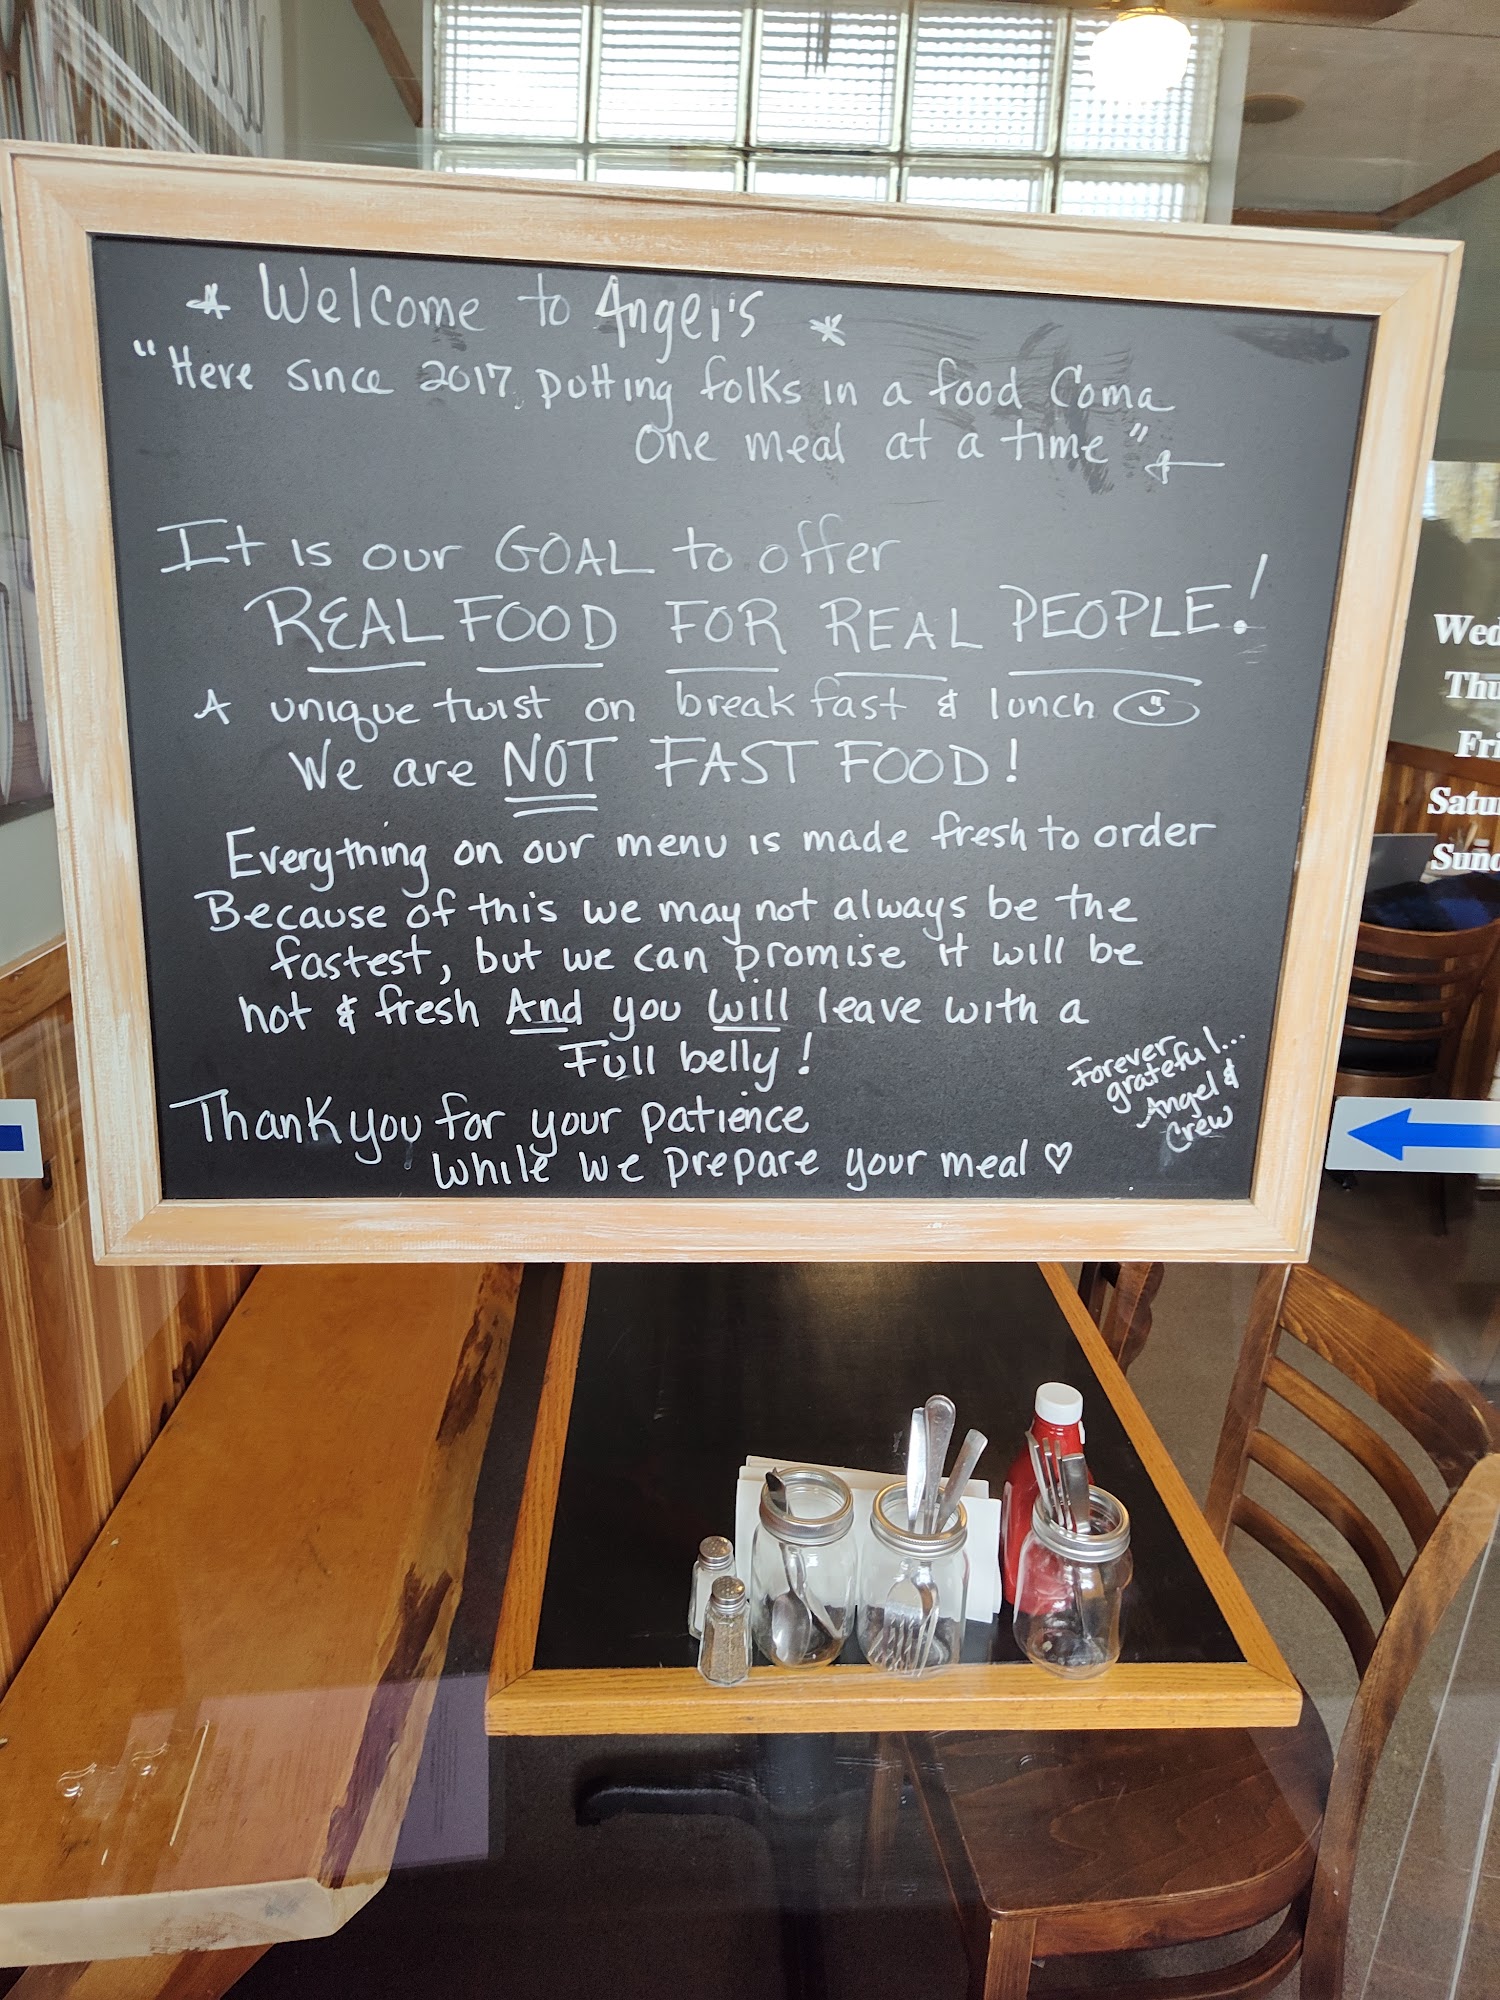 Welcome to Angel's
"Here since 2017, putting folks in a food Coma
One meal at a time"
It is our GOAL to offer
REAL FOOD FOR REAL PEOPLE!
A unique twist on breakfast & lunch
We are NOT FAST FOOD!
Everything on our menu is made fresh to order
Because of this we may not always be the
fastest, but we can promise it will be
hot & fresh And you will leave with a
Full belly!
Thank you for your patience
while we prepare your meal ♡
Forever
grateful...
Angel &
Crew
Wed
Thu
Fri
Satu
Sund